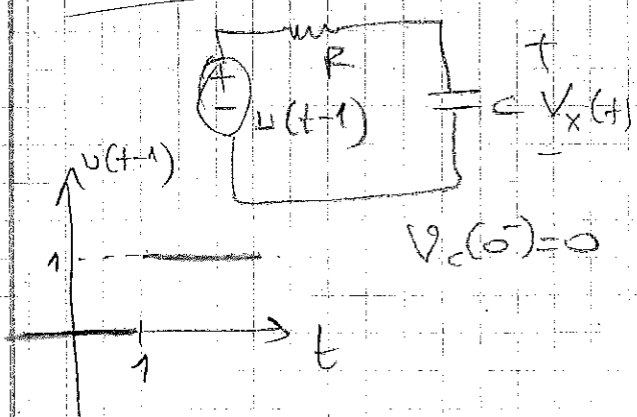 R
+
+
-
u(t-1)
C
Vx(t)
-
u(t-1)
Vc(0⁻)=0
1
1
t